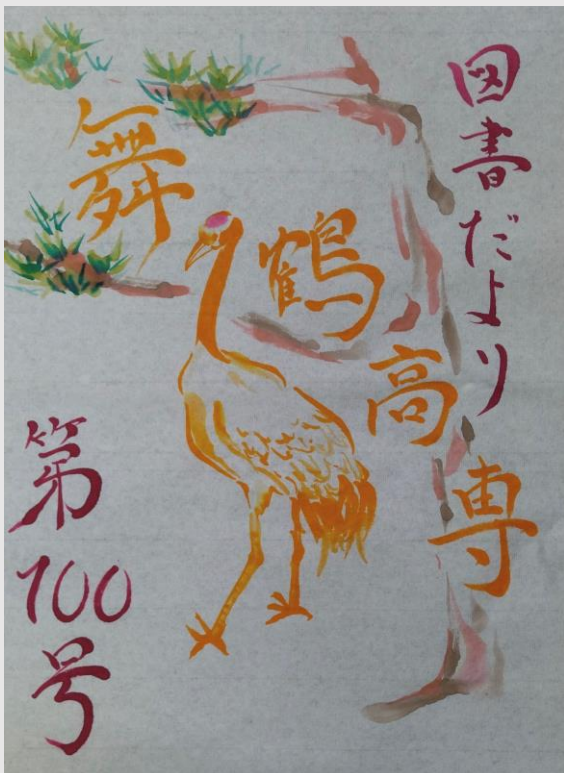 図書だより
舞鶴高専
第100号